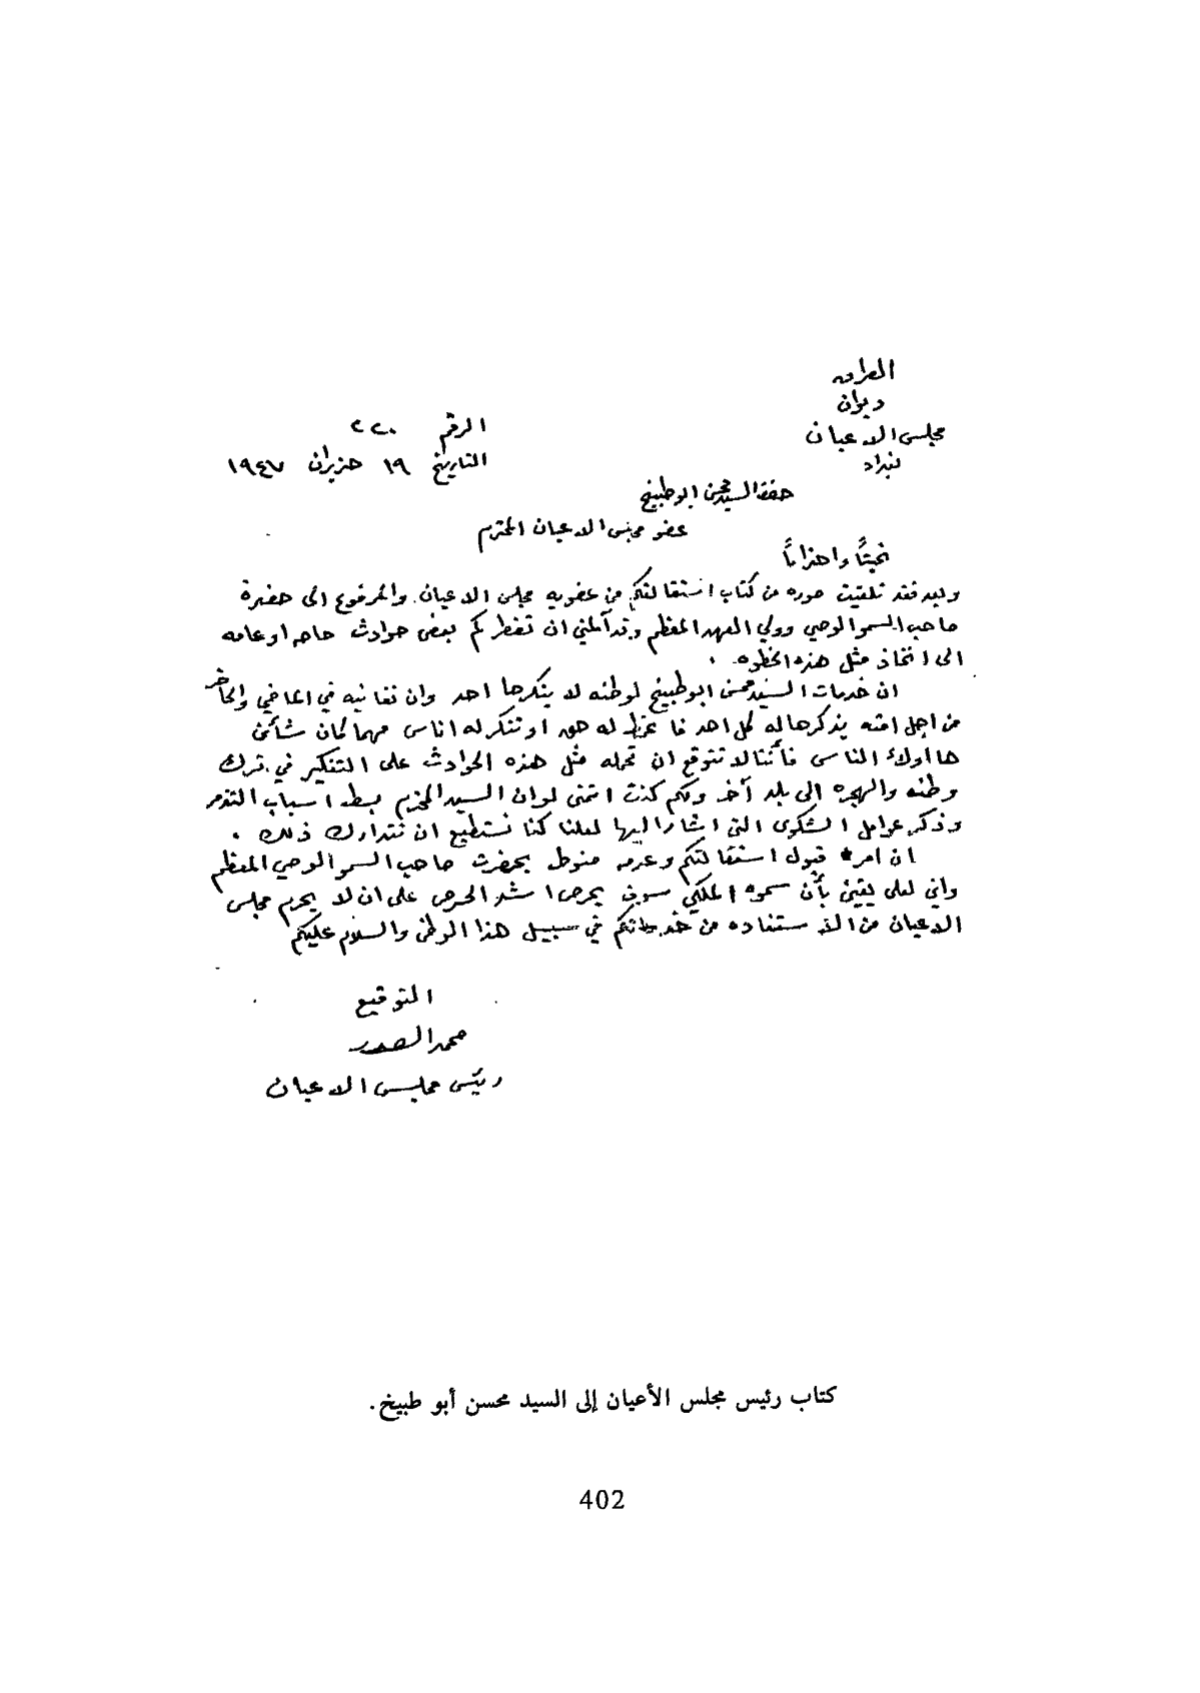 العراق
ديوان
مجلس الاعيان
بغداد
الرقم ٢٢٠
التاريخ ١٩ حزيران ١٩٤٧
حضرة السيد محسن ابو طبيخ
عضو مجلس الاعيان المحترم
تحيتاً واحتراماً
وبعد فقد تلقيت صوره من كتاب استقالتكم من عضويه مجلس الاعيان. والمرفوع الى حضرة
صاحب السمو الوصي وولي العهد المعظم وقد آلمني ان تضطركم بعض حوادث خاصه او عامه
الى اتخاذ مثل هذه الخطوه .
ان خدمات السيد محسن ابو طبيخ لوطنه لا ينكرها احد وان تفانيه في الماضي والحاضر
من اجل امته يذكرها له كل احد فا غمط له حق او تنكر له اناس مهما كان شأن
ها اولاء الناس فأننا لا نتوقع ان تحمله مثل هذه الحوادث على التفكير في ترك
وطنه والهجره الى بلد آخر وكم كنت اتمنى لو ان السيد المحترم بسط اسباب التذمر
وذكر عوامل الشكوى التي اشار اليها لعلنا كنا نستطيع ان نتدارك ذلك .
ان امر قبول استقالتكم وعدمه منوط بحضرت صاحب السمو الوصي المعظم
واني لعلى يقين بأن سموه الملكي سوف يحرص اشد الحرص على ان لا يحرم مجلس
الاعيان من الاستفاده من خدماتكم في سبيل هذا الوطن والسلام عليكم
التوقيع
محمد الصدر
رئيس مجلس الاعيان
كتاب رئيس مجلس الأعيان إلى السيد محسن أبو طبيخ.
402